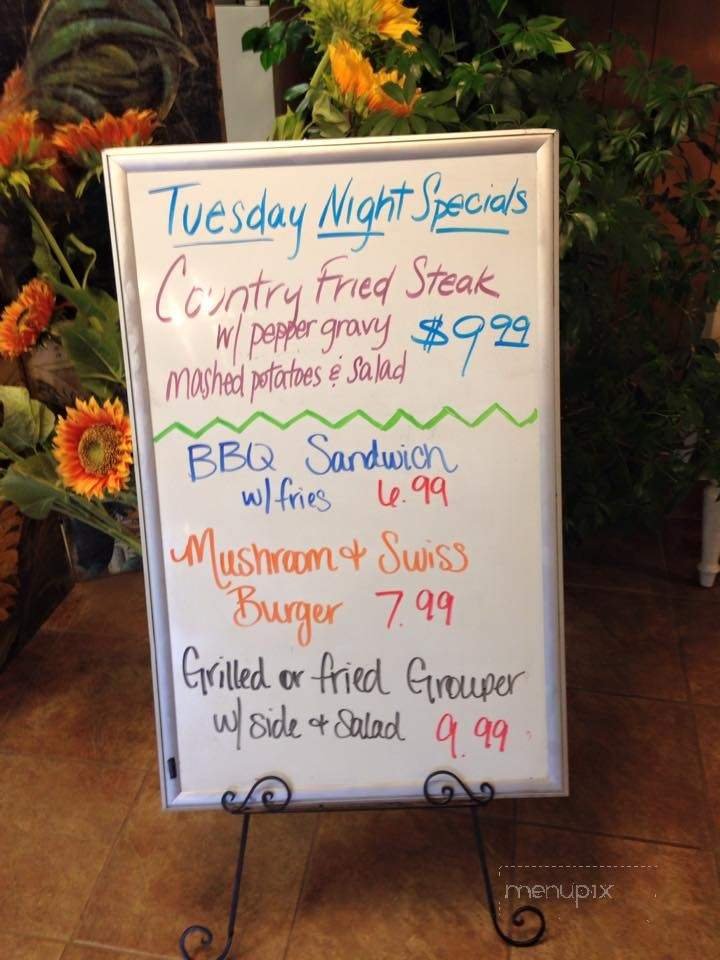 Tuesday Night Specials
Country Fried Steak
w/ pepper gravy $9.99
mashed potatoes & salad
BBQ Sandwich
w/ fries 6.99
Mushroom & Swiss
Burger 7.99
Grilled or fried Grouper
w/ side & salad 9.99
menupix